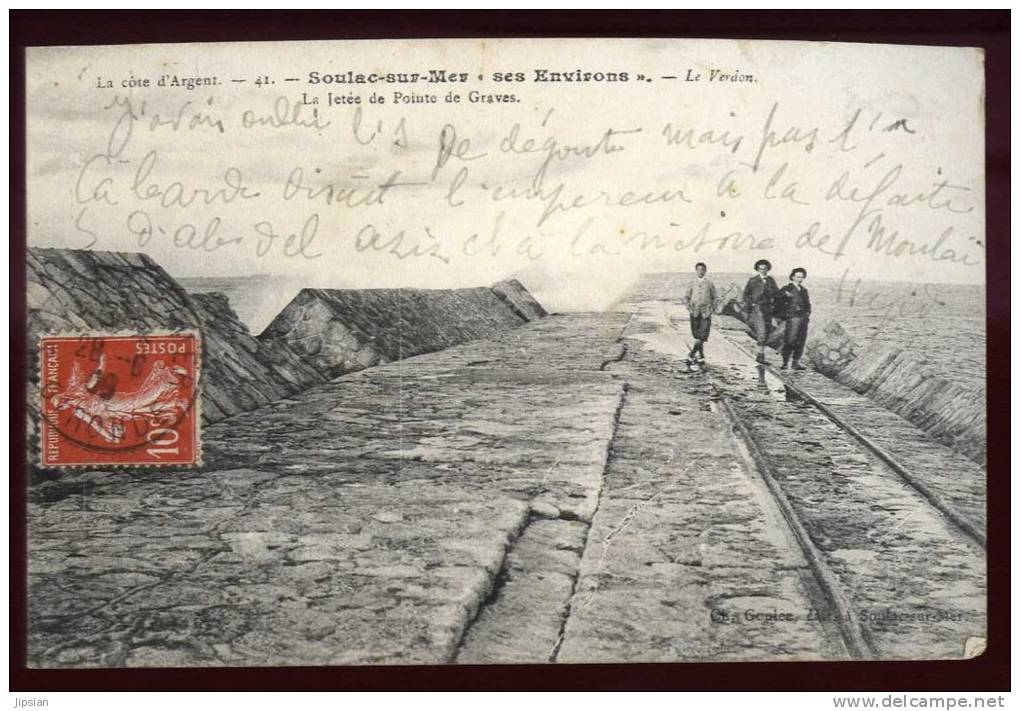 La côte d'Argent. — 41. — Soulac-sur-Mer « ses Environs ». — Le Verdon.
La Jetée de Pointe de Graves.
J'avais oublié
De dégoute mais pas l'
disait l'empereur à la défaite
d'Abd el Azis et à la victoire de Moulaï
Hafid
POSTES
REPUBLIQUE FRANÇAISE
10c
28 -8
09
GIRONDE
Ch. Goulée, Édit. à Soulac-sur-Mer.
jipsian
www.delcampe.net